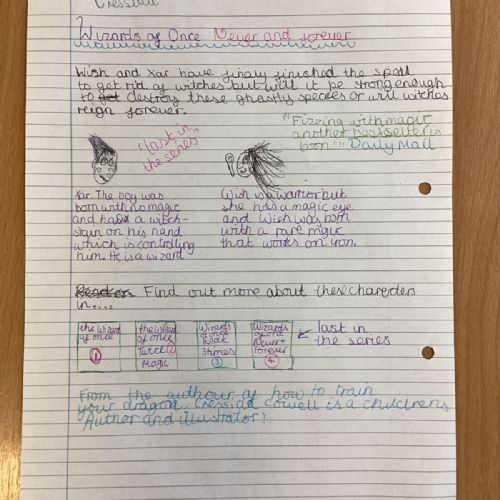 Cressida
Wizards of Once Never and forever
Wish and Xar have finaly finished the spell
to get rid of witches but will it be strong enough
to get destroy these ghastly species or will witches
reign forever.
"Fizzing with magic
another bestseller is
born"! Daily Mail
"last in
the series"
Xar. The boy was
born with no magic
and has a witch-
stain on his hand
which is controlling
him. He is a wizard
Wish is a warrior but
she has a magic eye
and Wish was born
with a rare magic
that works on iron.
Readers Find out more about these charecters
in....
the wizard
of once
1
the wizard
of once
Twice
Magic
2
Wizards
of once
Knock
3 times
3
Wizards
of once
Never +
forever
4
← last in
the series
From the authour of how to train
your dragon. Cressida Cowell is a childrens
Author and illustrator!